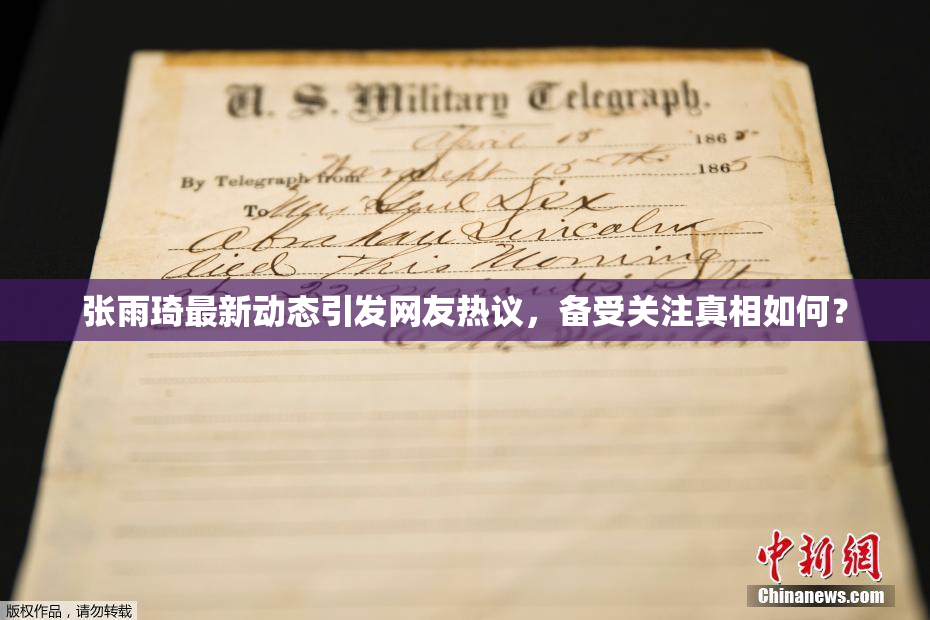 U. S. Military Telegraph.
April 15 1865
By Telegraph from War Dept 15th 1865
To Maj Genl Dix
Abraham Lincoln
died This Morning
at 22 minutes after
张雨琦最新动态引发网友热议，备受关注真相如何？
中新网
Chinanews.com
版权作品，请勿转载